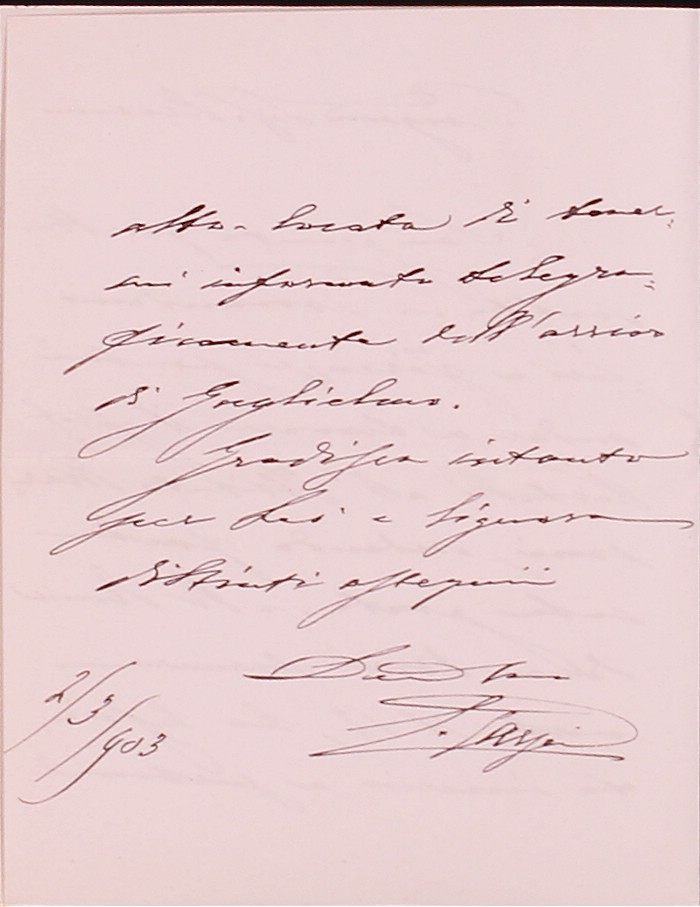 di tener-
mi informato telegra-
ficamente dell'arrivo
di Guglielmo.
Gradisca intanto
per Lei e Signora
distinti ossequii
2/3/903